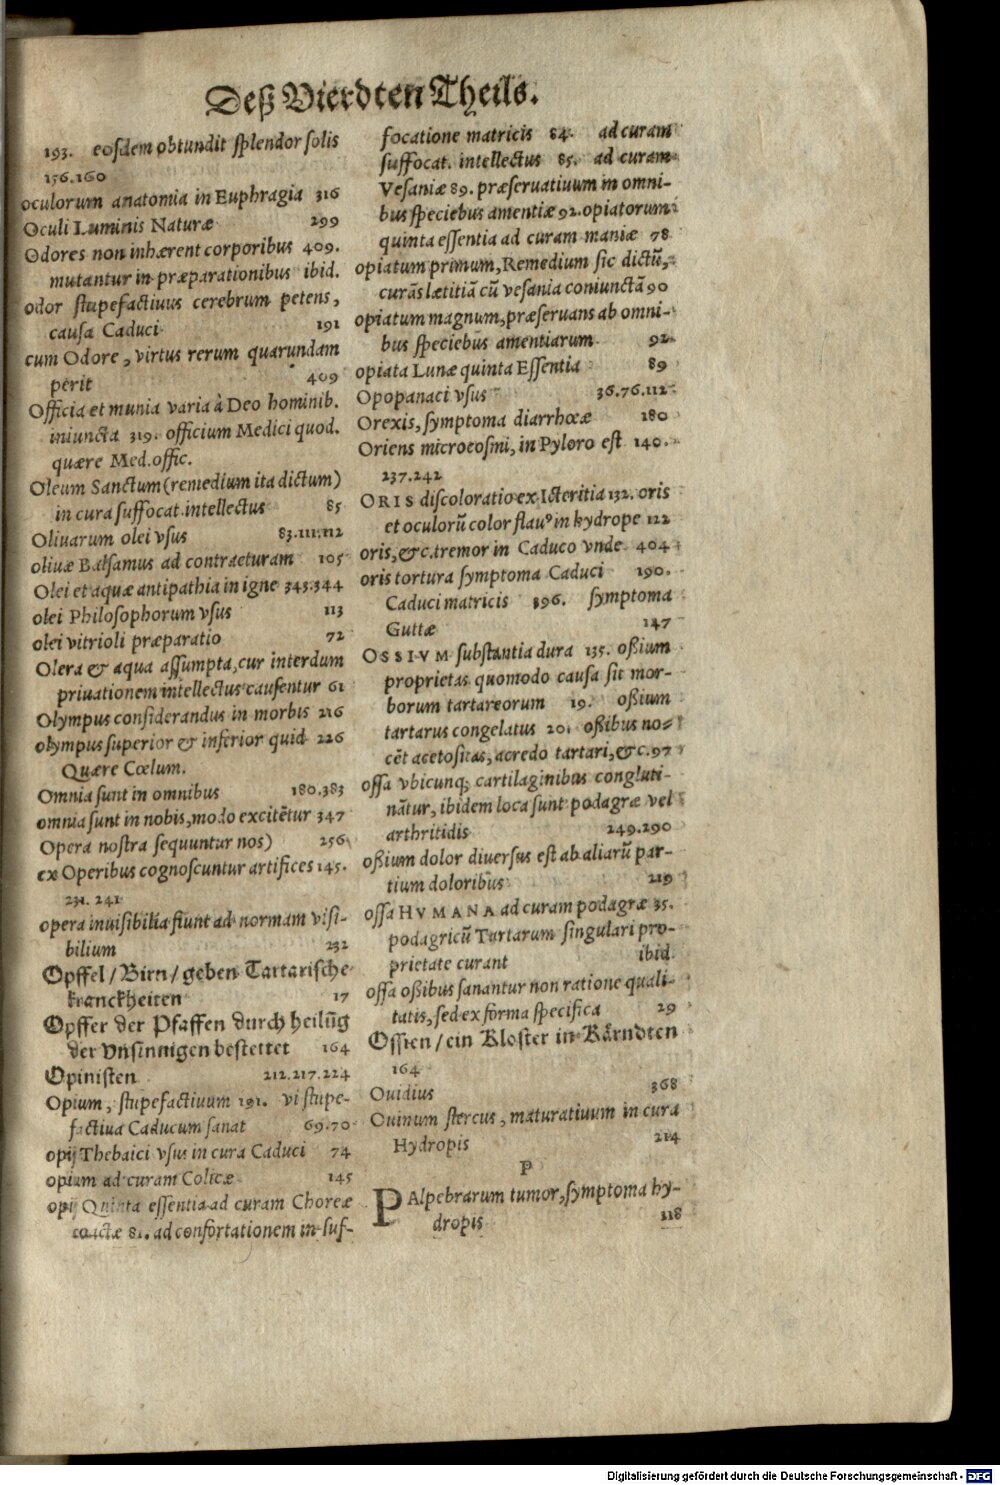 Deß Vierdten Theils.
193. eosdem obtundit splendor solis
156.160
oculorum anatomia in Euphragia 316
Oculi Luminis Naturæ 299
Odores non inhærent corporibus 409.
mutantur in præparationibus ibid.
odor stupefactiuus cerebrum petens,
causa Caduci 191
cum Odore, virtus rerum quarundam
perit 409
Officia et munia varia à Deo hominib.
iniuncta 319. officium Medici quod.
quære Med.offic.
Oleum Sanctum (remedium ita dictum)
in cura suffocat.intellectus 85
Oliuarum olei vsus 83.111.112
oliuæ Balsamus ad contracturam 105
Olei et aquæ antipathia in igne 343.344
olei Philosophorum vsus 113
olei vitrioli præparatio 72
Olera & aqua assumpta, cur interdum
priuationem intellectus causentur 61
Olympus considerandus in morbis 216
olympus superior & inferior quid 226
Quære Cœlum.
Omnia sunt in omnibus 180.383
omnia sunt in nobis, modo excitẽtur 347
Opera nostra sequuntur nos) 256
ex Operibus cognoscuntur artifices 145.
231. 241
opera inuisibilia fiunt ad normam visi-
bilium 232
Opffel / Birn / geben Tartarische
kranckheiten 17
Opffer der Pfaffen durch heilũg
der vnsinnigen bestettet 164
Opinisten 212.217.224
Opium, stupefactiuum 191. vi stupe-
factiua Caducum sanat 69.70
opij Thebaici vsus in cura Caduci 74
opium ad curam Colicæ 145
opij Quinta essentia ad curam Choreæ
coactæ 81. ad confortationem in suf-
focatione matricis 84. ad curam
suffocat. intellectus 85. ad curam
Vesaniæ 89. præseruatiuum in omni-
bus speciebus amentiæ 92. opiatorum
quinta essentia ad curam maniæ 78
opiatum primum, Remedium sic dictũ,
curãs lætitiã cũ vesania coniunctã 90
opiatum magnum, præseruans ab omni-
bus speciebus amentiarum 92
opiata Lunæ quinta Essentia 89
Opopanaci vsus 36.76.112
Orexis, symptoma diarrhœæ 180
Oriens microcosmi, in Pyloro est 140.
237.242
ORIS discoloratio ex Icteritia 132. oris
et oculorũ color flauꝰ in hydrope 122
oris, &c. tremor in Caduco vnde 404
oris tortura symptoma Caduci 190.
Caduci matricis 396. symptoma
Guttæ 147
OSSIVM substantia dura 135. oßium
proprietas quomodo causa sit mor-
borum tartareorum 19. oßium
tartarus congelatus 20. oßibus no-
cẽt acetositas, acredo tartari, &c. 97
ossa vbicunq; cartilaginibus congluti-
nãtur, ibidem loca sunt podagræ vel
arthritidis 249.290
oßium dolor diuersus est ab aliarũ par-
tium doloribus 219
ossa HVMANA ad curam podagræ 35.
podagricũ Tartarum singulari pro-
prietate curant ibid.
ossa oßibus sanantur non ratione quali-
tatis, sed ex forma specifica 29
Ossien / ein Kloster in Kärndten
164
Ouidius 368
Ouinum stercus, maturatiuum in cura
Hydropis 214
P
PAlpebrarum tumor, symptoma hy-
dropis 118
Digitalisierung gefördert durch die Deutsche Forschungsgemeinschaft - DFG